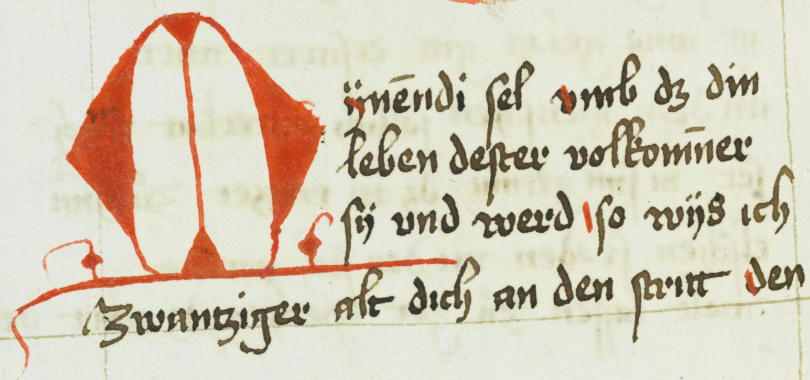 Mÿnēndi sel vmb dꝫ din
leben dester volkom̄er
sÿ vnd werd so wijs ich
Zwantziger alt dich an den stritt den